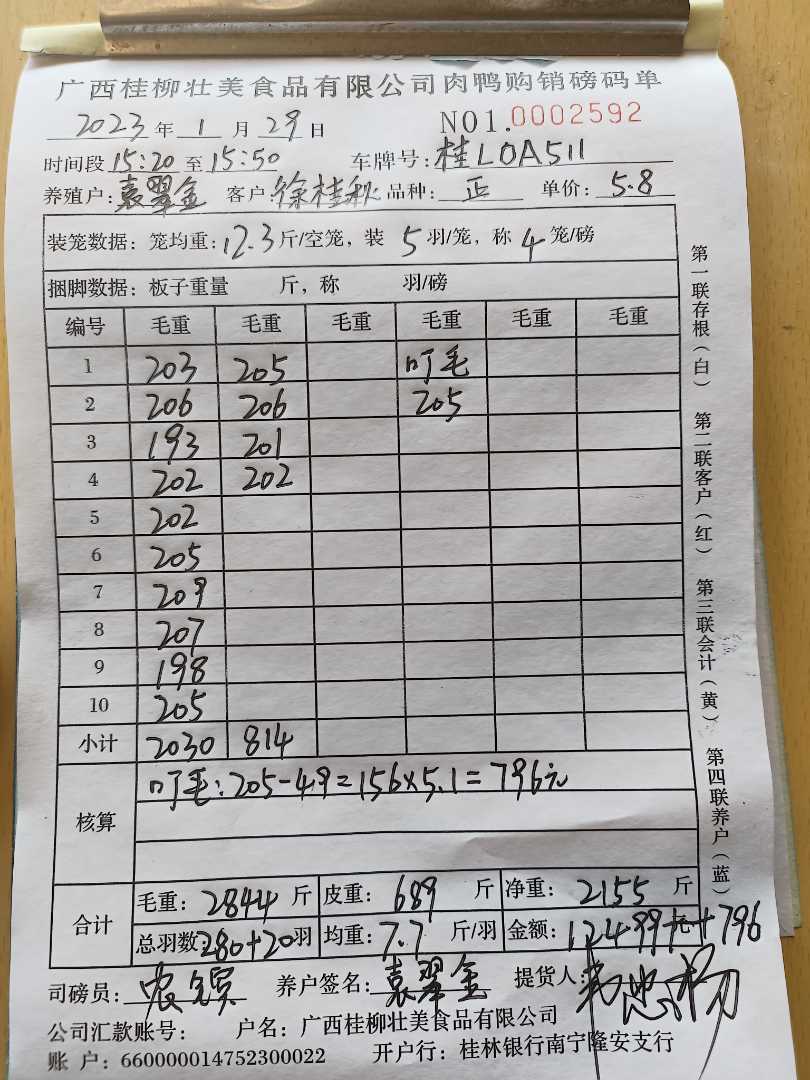 广西桂柳壮美食品有限公司肉鸭购销磅码单
2023年1月29日 NO1.0002592
时间段15:20至15:50 车牌号:桂L0A511
养殖户:袁翠金 客户:徐桂秋 品种:正 单价:5.8
装笼数据:笼均重:12.3斤/空笼,装5羽/笼,称4笼/磅
捆脚数据:板子重量 斤,称 羽/磅
编号 毛重 毛重 毛重 毛重 毛重 毛重
1 203 205 叮毛
2 206 206 205
3 193 201
4 202 202
5 202
6 205
7 209
8 207
9 198
10 205
小计 2030 814
核算 叮毛:205-49=156×5.1=796元
合计 毛重:2844斤 皮重:689斤 净重:2155斤
总羽数:280+20羽 均重:7.7斤/羽 金额:12499元+796
司磅员: 养户签名:袁翠金 提货人:
公司汇款账号: 户名:广西桂柳壮美食品有限公司
账 户:660000014752300022 开户行:桂林银行南宁隆安支行
第一联存根(白) 第二联客户(红) 第三联会计(黄) 第四联养户(蓝)